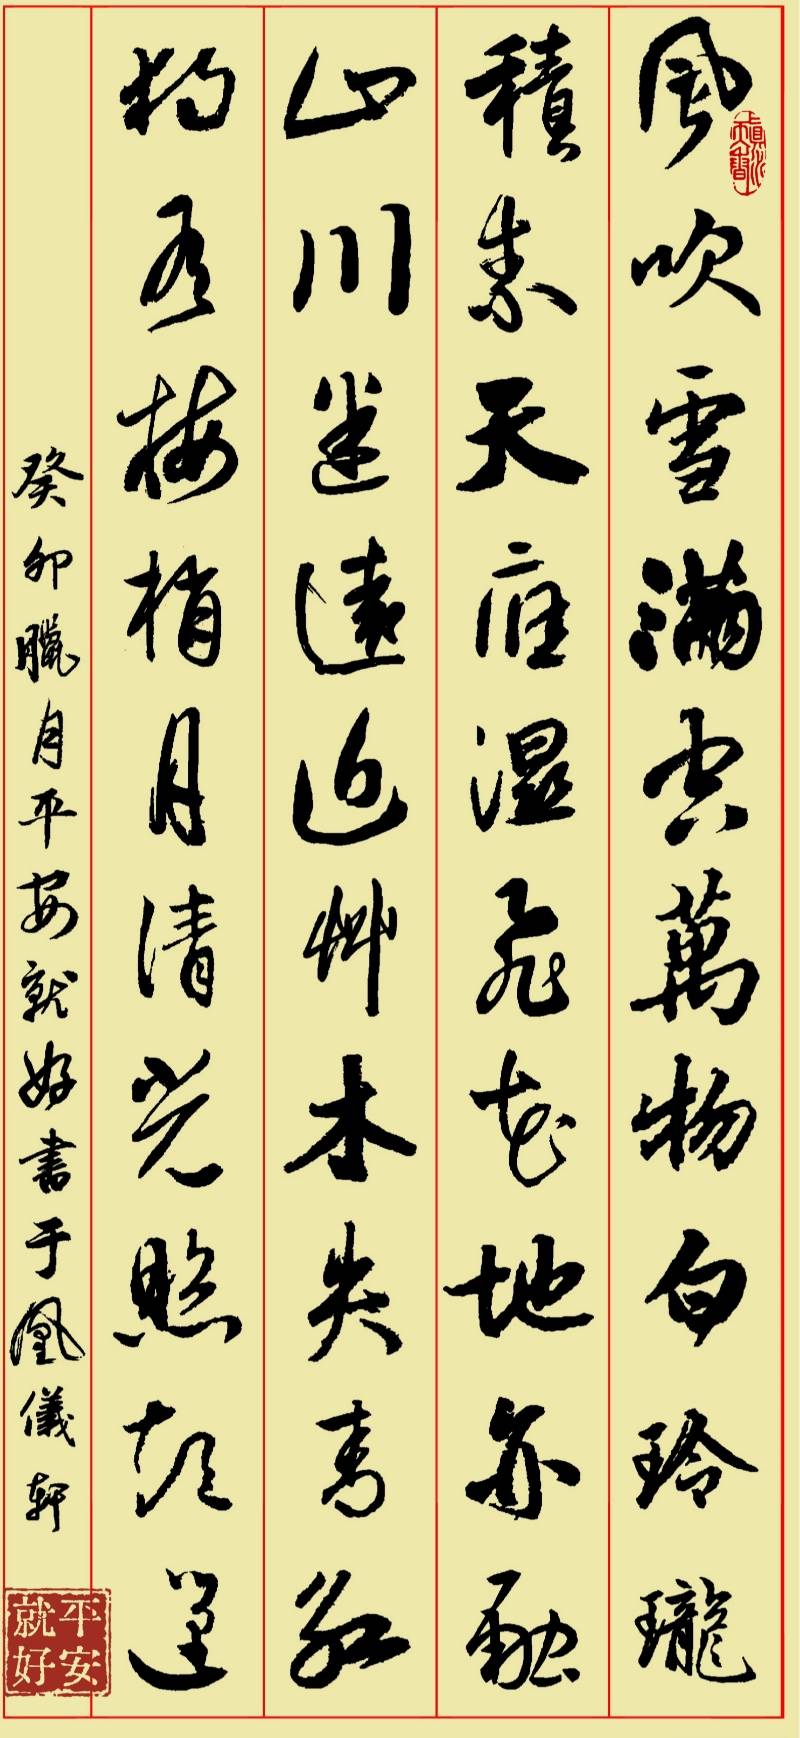 風吹雪滿空萬物白玲瓏
積素天應湿飛花地亦融
山川迷遠近艸木失青紅
獨有梅梢月清光照
癸卯臘月平安就好書于凰儀軒
平安
就好